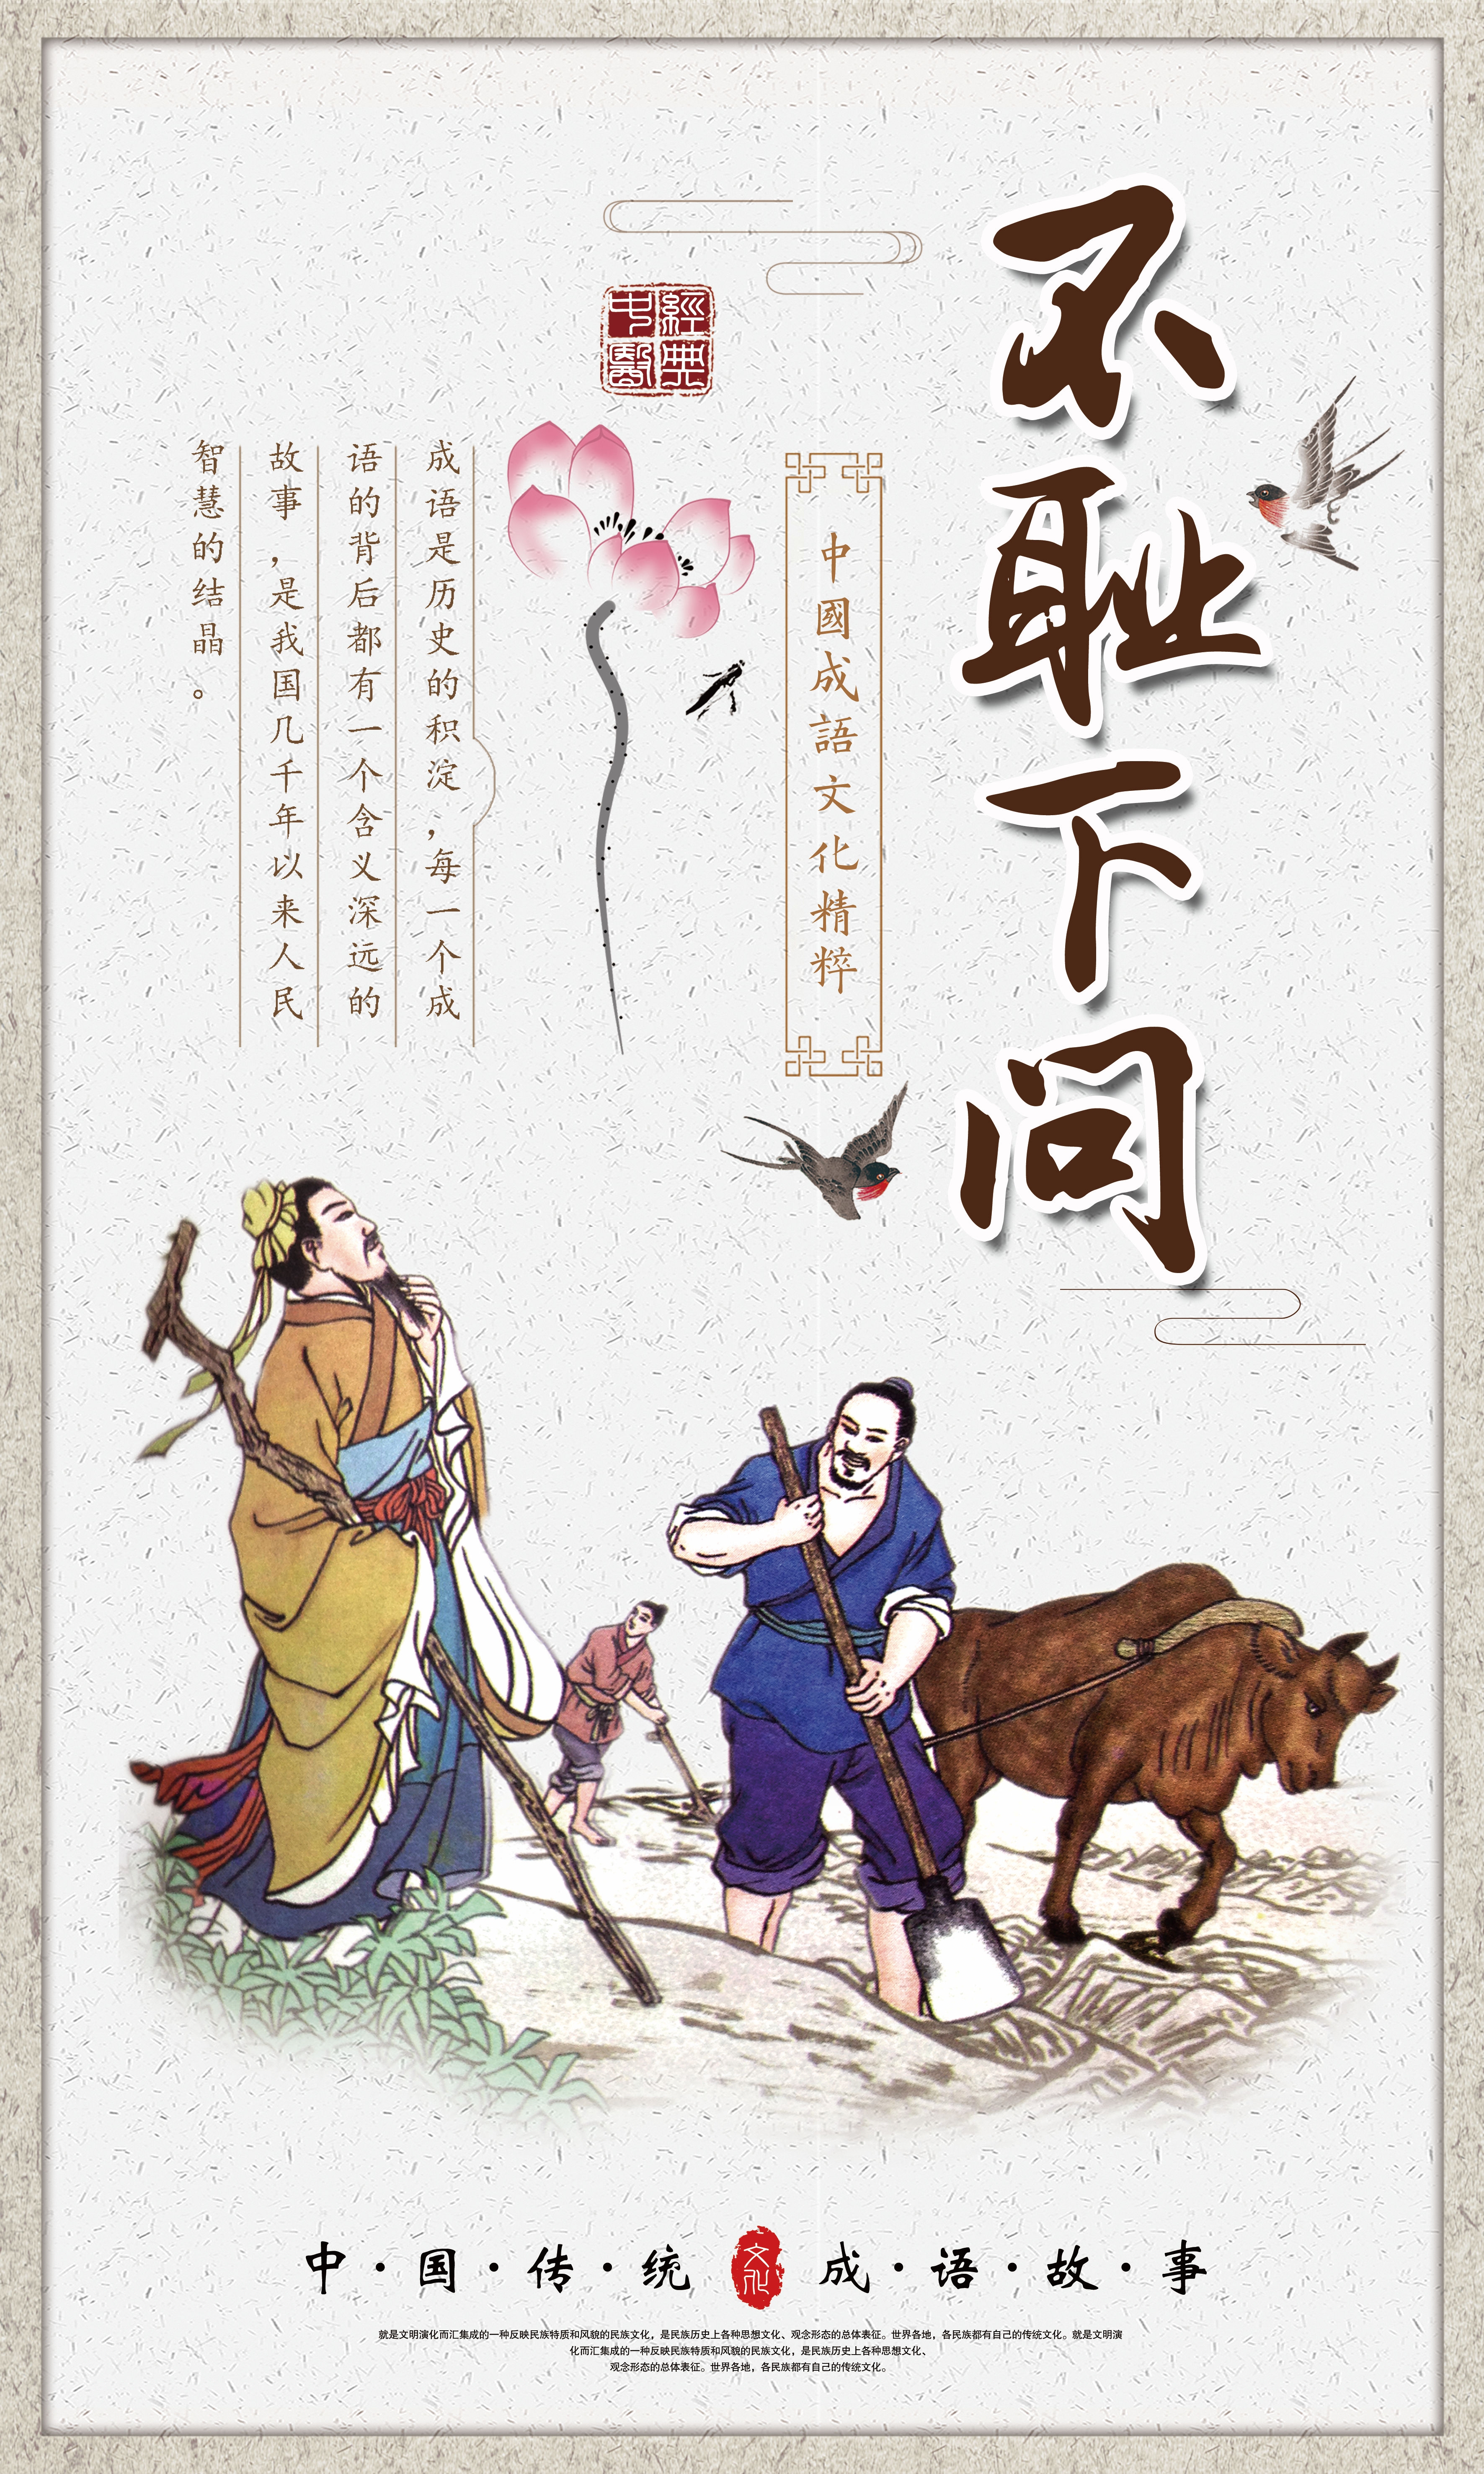 不耻下问
中國成語文化精粹
經典
中醫
成语是历史的积淀，每一个成
语的背后都有一个含义深远的
故事，是我国几千年以来人民
智慧的结晶。
中·国·传·统 文化 成·语·故·事
就是文明演化而汇集成的一种反映民族特质和风貌的民族文化，是民族历史上各种思想文化、观念形态的总体表征。世界各地，各民族都有自己的传统文化。就是文明演
化而汇集成的一种反映民族特质和风貌的民族文化，是民族历史上各种思想文化、
观念形态的总体表征。世界各地，各民族都有自己的传统文化。